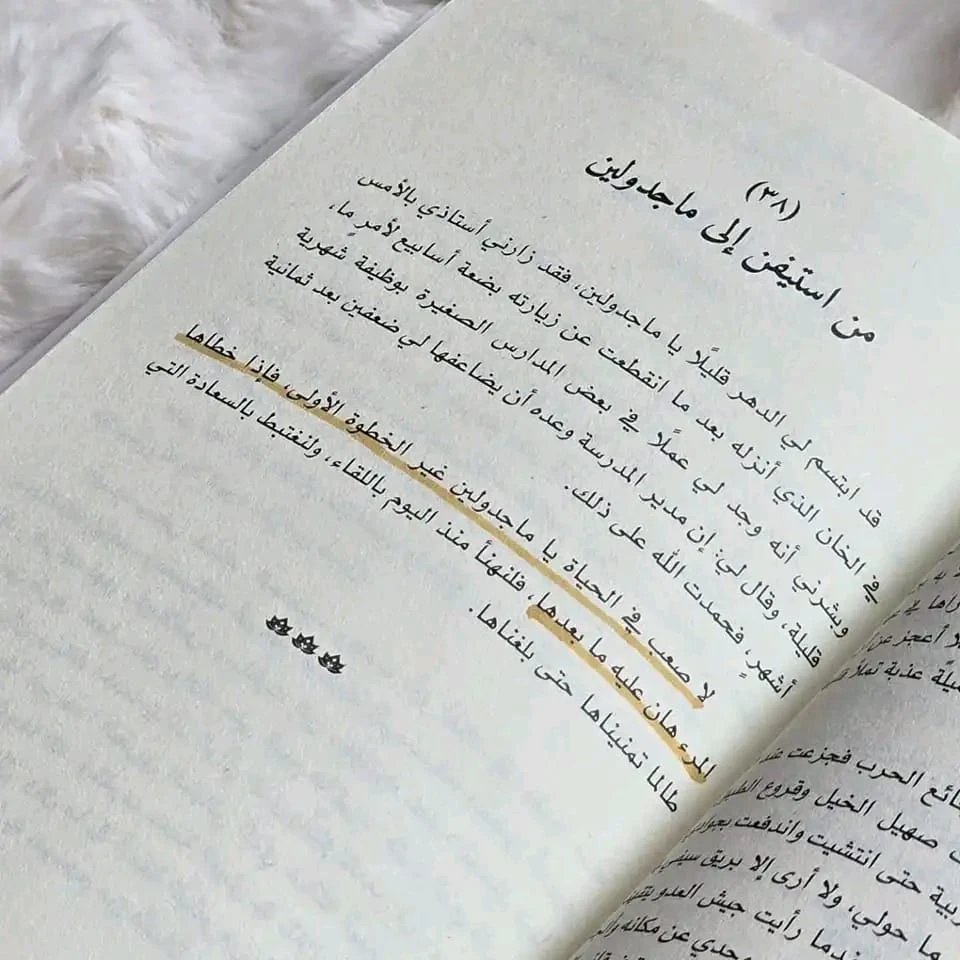 (٣٨)
من استيفن إلى ماجدولين
قد ابتسم لي الدهر قليلًا يا ماجدولين، فقد زارني أستاذي بالأمس
في الخان الذي أنزله بعد ما انقطعت عن زيارته بضعة أسابيع لأمرٍ ما،
وبشرني أنه وجد لي عملًا في بعض المدارس الصغيرة بوظيفة شهرية
قليلة، وقال لي: إن مدير المدرسة وعده أن يضاعفها لي ضعفين بعد ثمانية
أشهرٍ، فحمدت الله على ذلك.
لا صعب في الحياة يا ماجدولين غير الخطوة الأولى، فإذا خطاها
المرء هان عليه ما بعدها، فلنهنأ منذ اليوم باللقاء، ولنغتبط بالسعادة التي
طالما تمنيناها حتى بلغناها.
لا أعجز عن
عذبة
ئع الحرب فجزعت
صهيل الخيل وقروع
حتى انتشيت واندفعت
حولي، ولا أرى إلا بريق
رأيت جيش العدو
عن مكانه